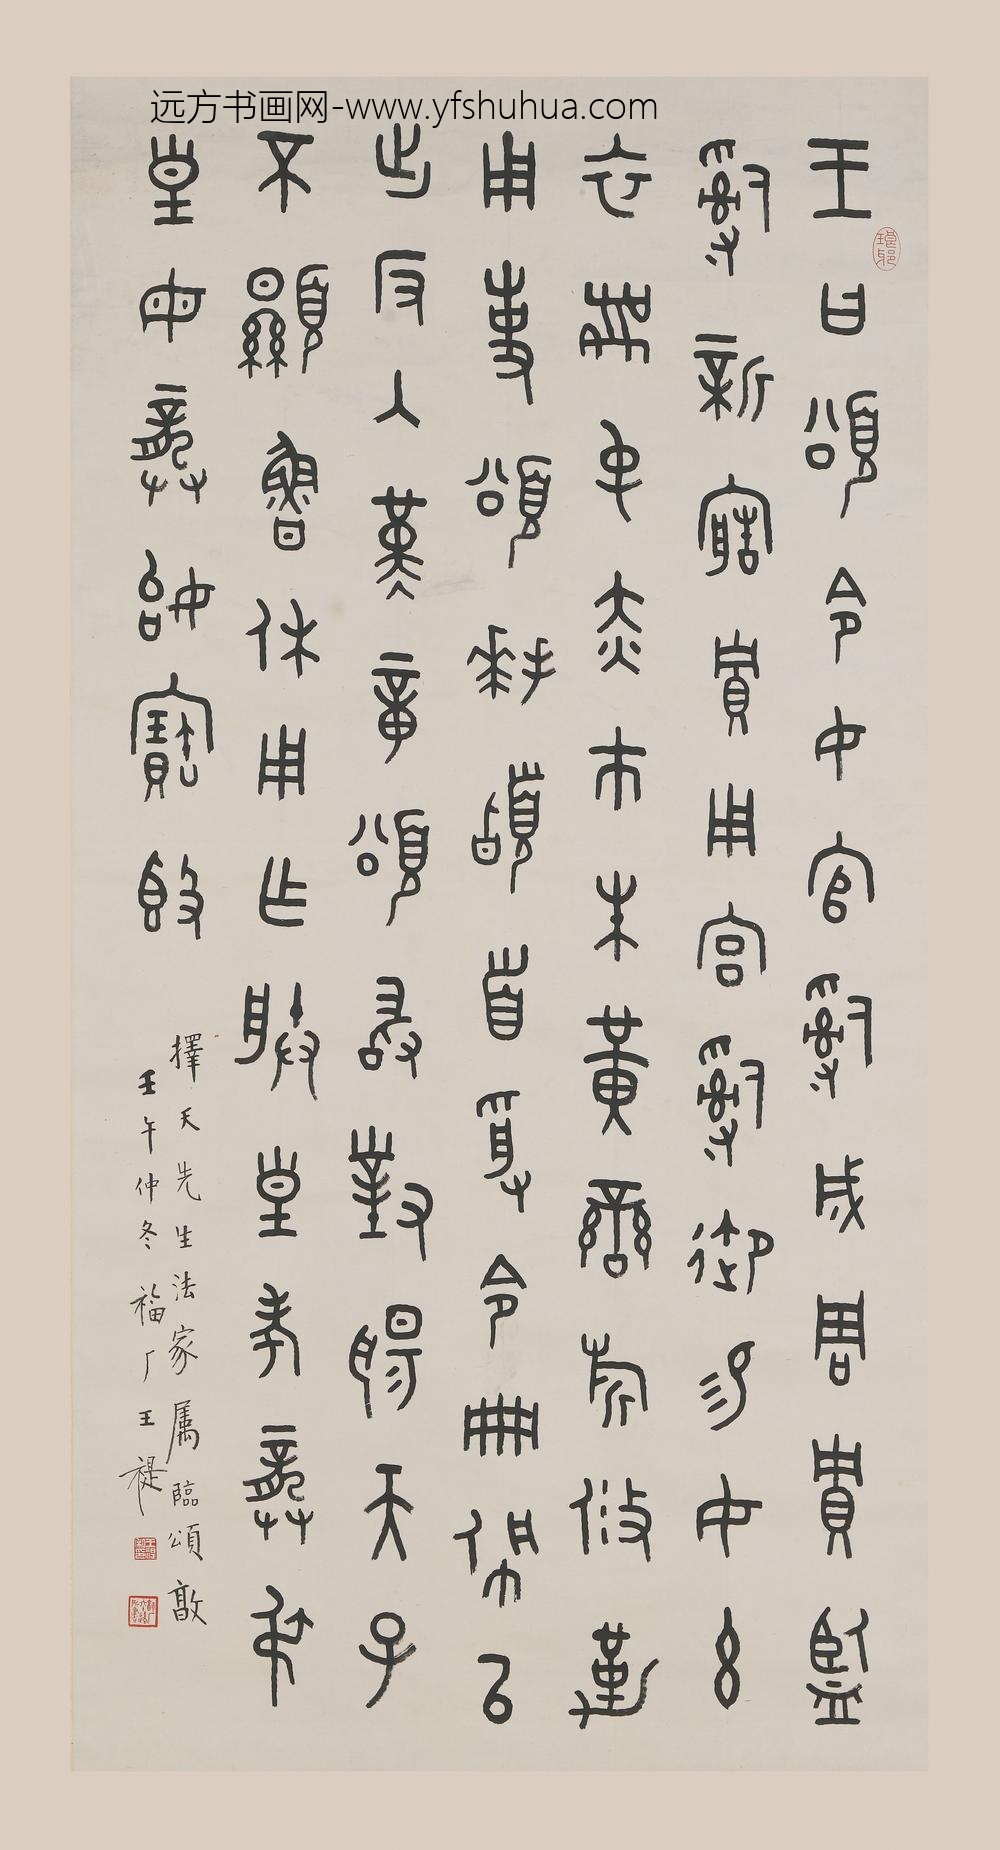 远方书画网-www.yfshuhua.com
王曰頌令女官𤔲成周貯監
𤔲新寤貯用宮𤔲御易女玄
衣黹屯赤巿朱黃鑾旂攸勒
用事頌拜𩒨首受令冊佩以
出反入堇章頌敢對揚天子
不顯魯休用乍朕皇考龏弔
皇母龏姒寶𣪘
擇天先生法家属臨頌敦
壬午仲冬福厂王禔